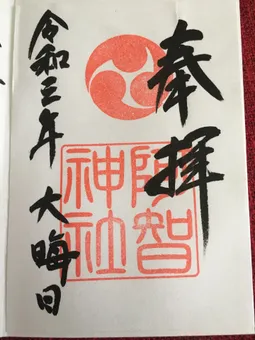 奉拝
阿智神社
令和三年 大晦日